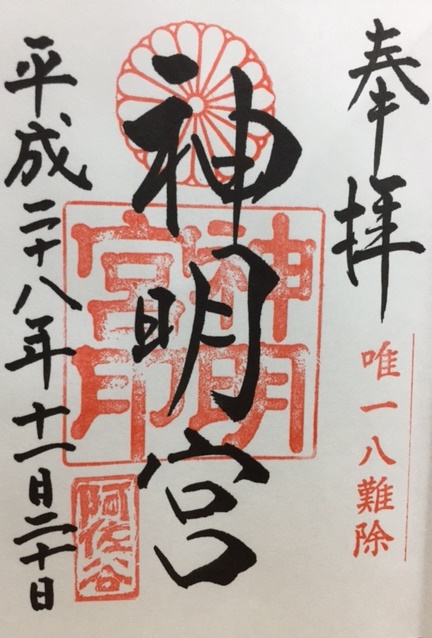 奉拝
唯一八難除
神明宮
神明宮印
平成二十八年十一月二十日
阿佐谷